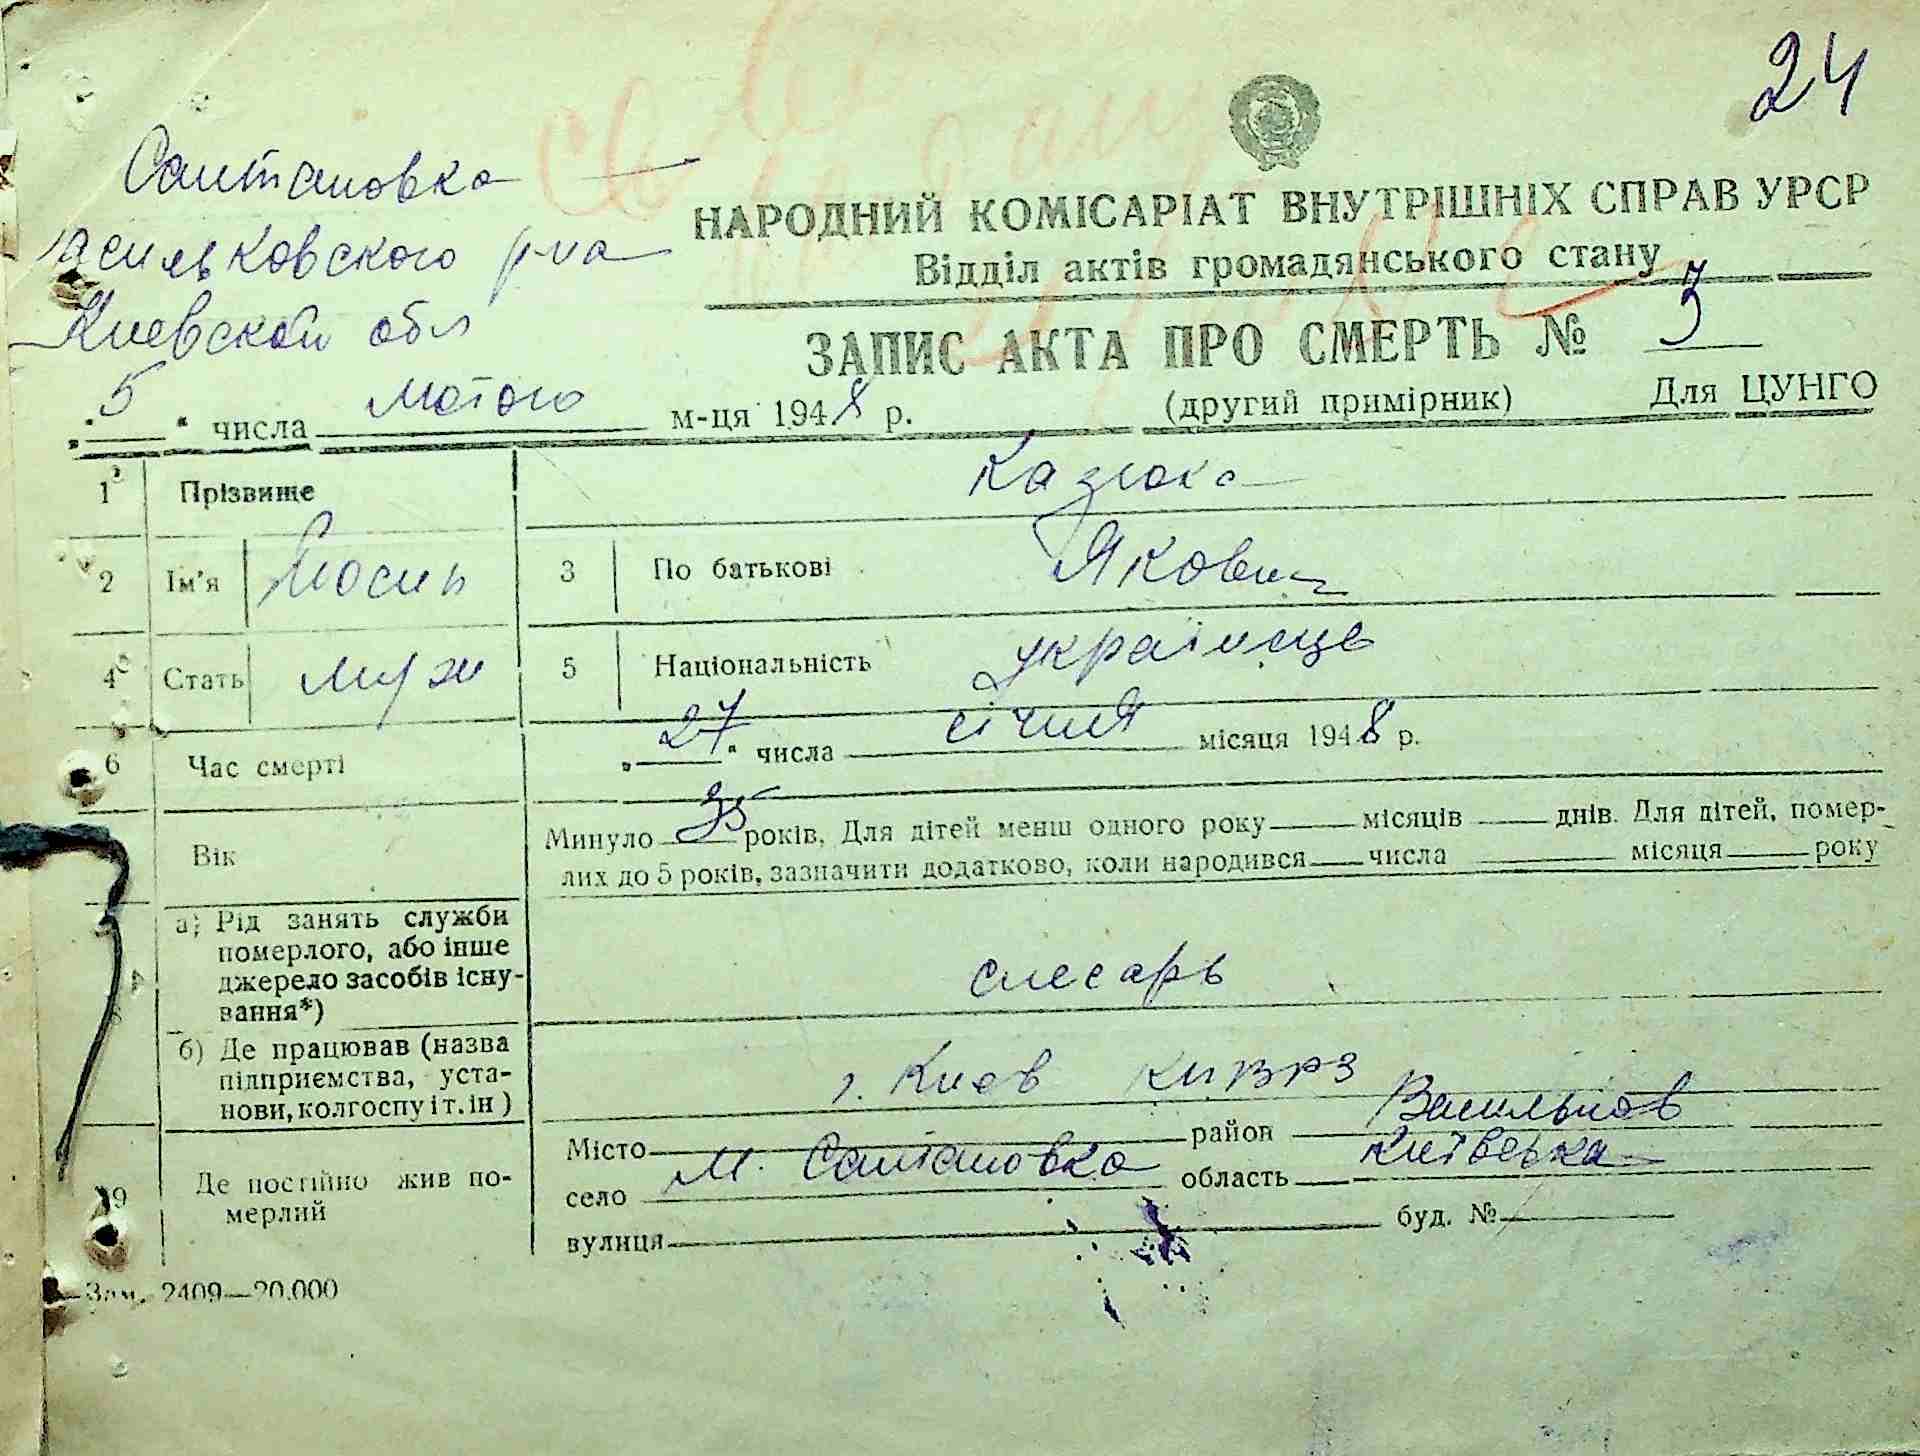 24
Салтановка
Васильковского р-на
НАРОДНИЙ КОМІСАРІАТ ВНУТРІШНІХ СПРАВ УРСР
Відділ актів громадянського стану
Киевской обл
ЗАПИС АКТА ПРО СМЕРТЬ № 3
„5“ числа лютого м-ця 1948 р.
(другий примірник)
Для ЦУНГО
1 Прізвище Казюка
2 Ім'я Йосип 3 По батькові Якович
4 Стать муж 5 Національність українець
6 Час смерті „27“ числа січня місяця 1948 р.
Вік Минуло 35 років. Для дітей менш одного року місяців днів. Для дітей, помер-
лих до 5 років, зазначити додатково, коли народився числа місяця року
а) Рід занять служби
померлого, або інше
джерело засобів існу-
вання*)
слесарь
б) Де працював (назва
підприємства, уста-
нови, колгоспу і т. ін)
г. Киев КПВРЗ
9 Де постійно жив по-
мерлий
Місто район Васильков
село М. Салтановка область Київська
вулиця буд. №
Зам. 2409—20.000